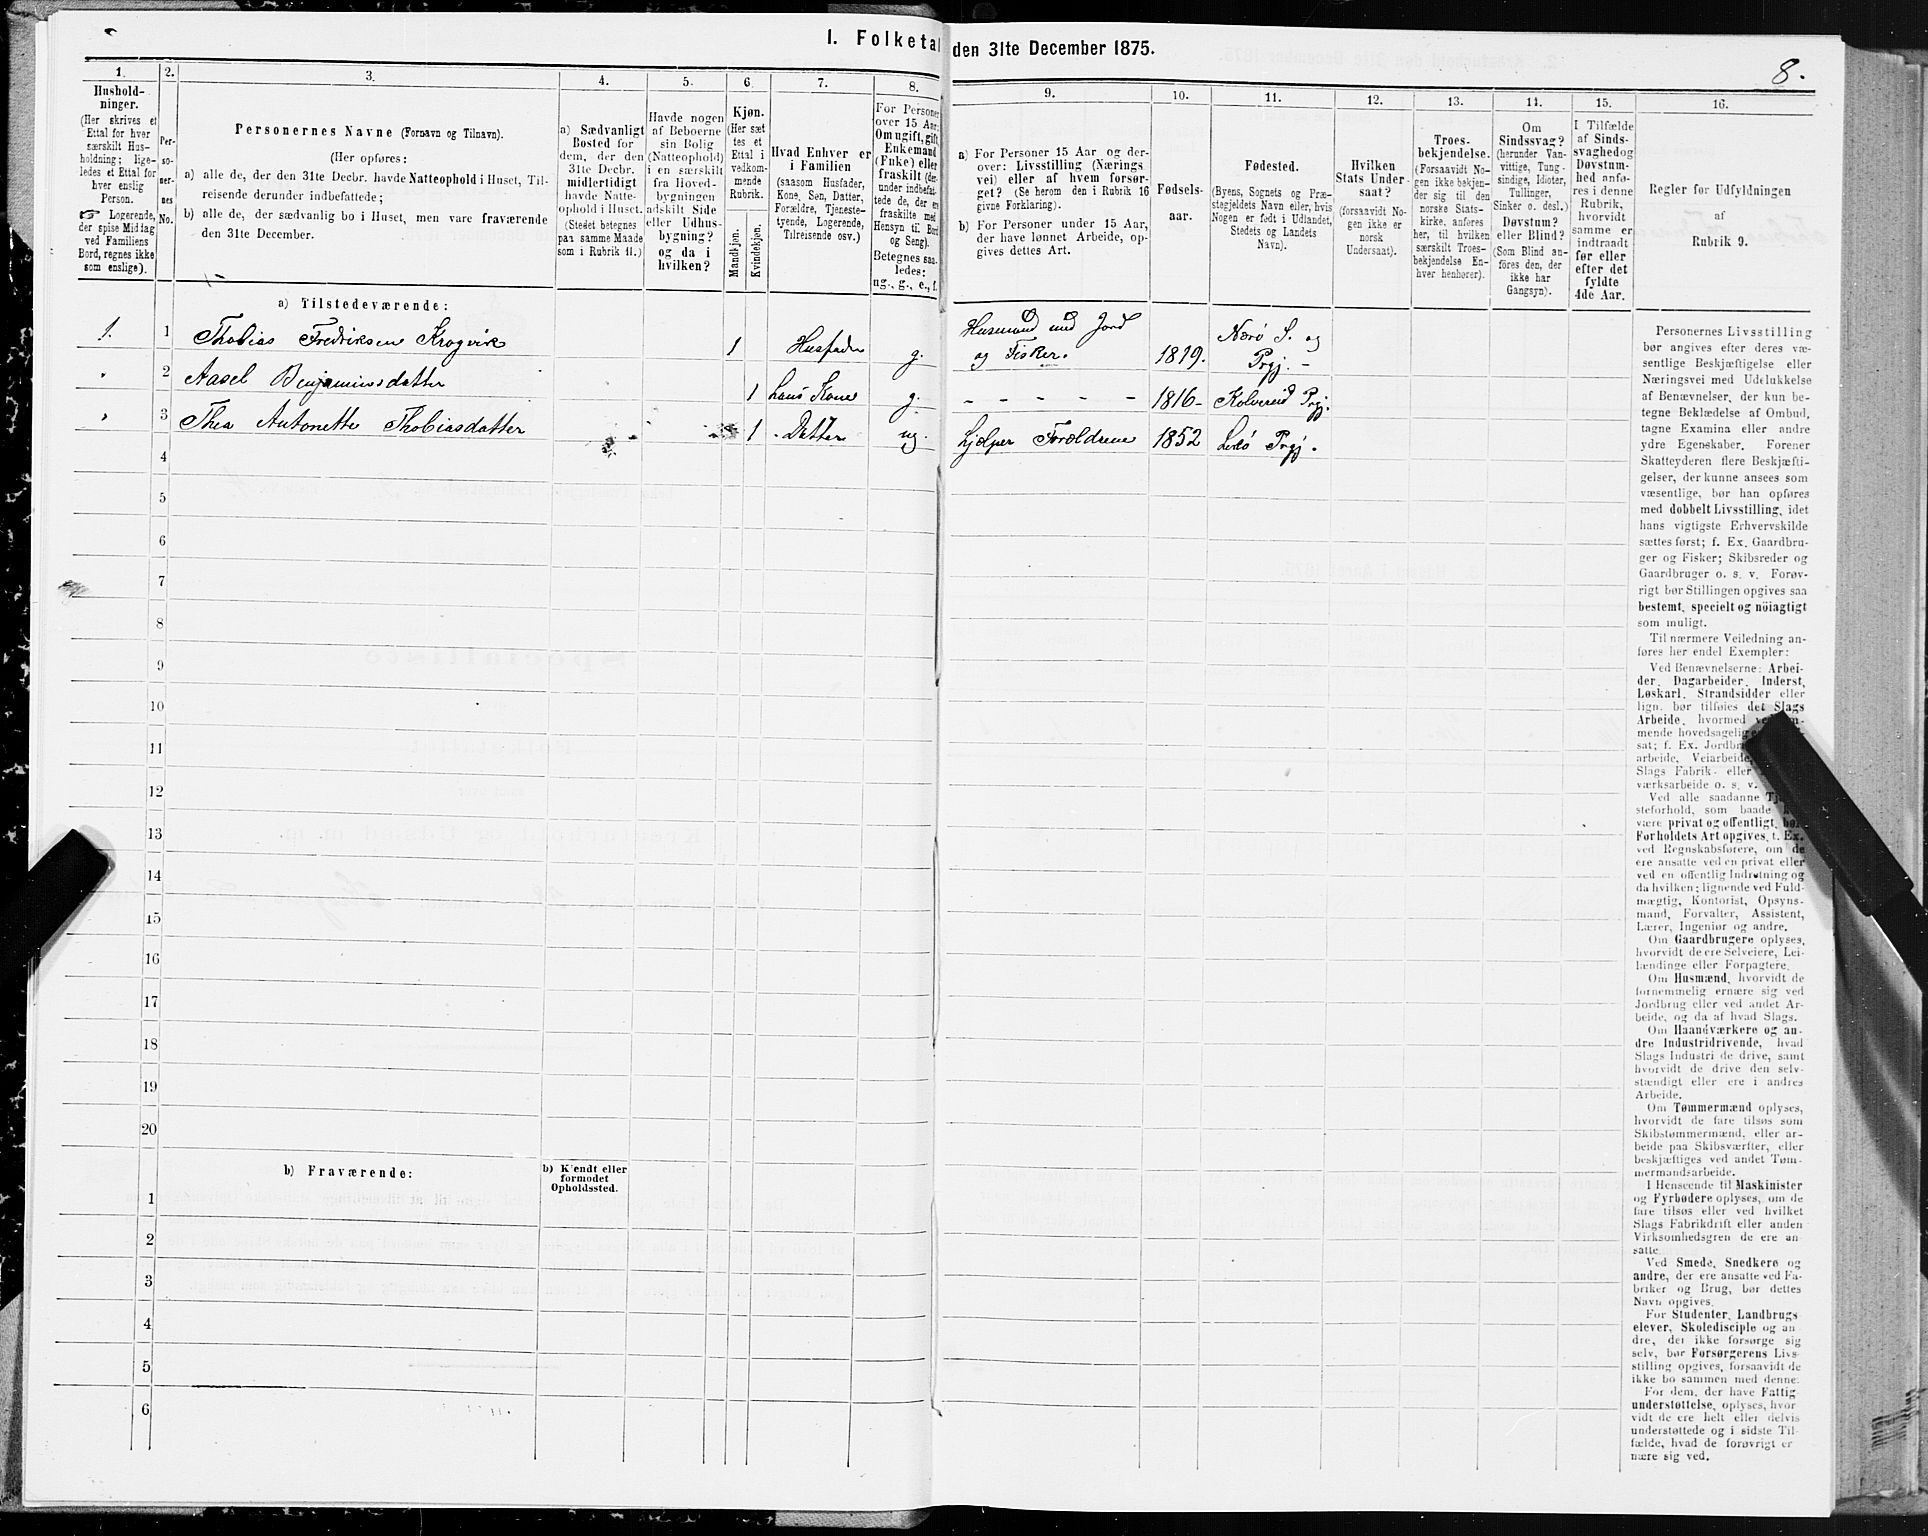 I. Folketal den 31te December 1875.
8.
1.
Hushold-
ninger.
(Her skrives et
Ettal for hver
særskilt Hus-
holdning; lige-
ledes et Ettal for
hver enslig
Person.
Logerende,
der spise Middag
ved Familiens
Bord, regnes ikke
som enslige).
2.
Per-
so-
ner-
nes
No.
3.
Personernes Navne (Fornavn og Tilnavn).
(Her opføres:
a) alle de, der den 31te Decbr. havde Natteophold i Huset, Til-
reisende derunder indbefattede;
b) alle de, der sædvanlig bo i Huset, men vare fraværende
den 31te December.
4.
a) Sædvanligt
Bosted for
dem, der den
31te Decbr.
midlertidigt
havde Natte-
ophold i Huset.
(Stedet betegnes
paa samme Maade
som i Rubrik 11.)
5.
Havde nogen
af Beboerne
sin Bolig
(Natteophold)
i en særskilt
fra Hoved-
bygningen
adskilt Side
eller Udhus-
bygning?
og da i
hvilken?
6.
Kjøn.
(Her sæt
tes et
Ettal i
vedkom-
mende
Rubrik.
Mandkjøn.
Kvindekjøn.
7.
Hvad Enhver er
i Familien
(saasom Husfader,
Kone, Søn, Datter,
Forældre, Tjeneste-
tyende, Logerende,
Tilreisende osv.)
8.
For Personer
over 15 Aar:
Om ugift, gift,
Enkemand
(Enke) eller
fraskilt (der-
under indbefat-
tede de, der ere
fraskilte med
Hensyn til Bord
og Seng).
Betegnes saa-
ledes:
ug., g., e., f.
9.
a) For Personer 15 Aar og der-
over: Livsstilling (Nærings
vei) eller af hvem forsør-
get? (Se herom den i Rubrik 16
givne Forklaring).
b) For Personer under 15 Aar,
der have lønnet Arbeide, op-
gives dettes Art.
10.
Fødsels-
aar.
11.
Fødested.
(Byens, Sognets og Præ-
stegjeldets Navn eller, hvis
Nogen er født i Udlandet,
Stedets og Landets
Navn).
12.
Hvilken
Stats Under-
saat?
(forsaavidt No-
gen ikke er
norsk
Undersaat).
13.
Troes-
bekjendelse.
(Forsaavidt No-
gen ikke bekjen-
der sig til den
norske Stats-
kirke, anføres
her, til hvilken
særskilt Troes-
bekjendelse En-
hver henhører).
14.
Om
Sindssvag?
(herunder Van-
vittige, Tung-
sindige, Idioter,
Tullinger,
Sinker o. desl.)
Døvstum?
eller Blind?
(Som Blind an-
føres den, der
ikke har
Gangsyn).
15.
I Tilfælde
af Sinds-
svaghed og
Døvstum-
hed anfø-
res i denne
Rubrik,
hvorvidt
samme er
indtraadt
før eller
efter det
fyldte
4de Aar.
16.
Regler for Udfyldningen
af
Rubrik 9.
a) Tilstedeværende:
1. 1 Thobias Fredriksen Krogvik 1 Husfader g. Husmand med Jord og Fisker. 1819. Nærø S. og Prgj. -
" 2 Aasel Benjaminsdatter 1 hans Kone g. - - - - - 1816- Kolvereid Prgj.
" 3 Thea Antonette Thobiasdatter 1 Datter ug. hjelper Forældrene 1852 Lekø Prgj.
4
5
6
7
8
9
10
11
12
13
14
15
16
17
18
19
20
b) Fraværende:
b) Kjendt eller
formodet
Opholdssted.
1
2
3
4
5
6
Personernes Livsstilling
bør angives efter deres væ-
sentlige Beskjæftigelse eller
Næringsvei med Udelukkelse
af Benævnelser, der kun be-
tegne Beklædelse af Ombud,
tagne Examina eller andre
ydre Egenskaber. Forener
Skatteyderen flere Beskjæfti-
gelser, der kunne ansees som
væsentlige, bør han opføres
med dobbelt Livsstilling, idet
hans vigtigste Erhvervskilde
sættes først; f. Ex. Gaardbru-
ger og Fisker; Skibsreder og
Gaardbruger o. s. v. Forøv-
rigt bør Stillingen opgives saa
bestemt, specielt og nöiagtigt
som muligt.
Til nærmere Veiledning an-
føres her endel Exempler:
Ved Benævnelserne: Arbei-
der, Dagarbeider, Inderst,
Løskarl, Strandsidder eller
lign. bør tilføies det Slags
Arbeide, hvormed
mende hovedsagelig
sat; f. Ex.
arbeide, Veiarbeide,
Slags Fabrik- eller
værksarbeide o. s. v.
Ved alle saadanne
steforhold, som baade
være privat og offentligt, bør
Forholdets Art opgives, t. Ex.
ved Regnskabsførere, om de
ere ansatte ved en privat eller
ved en offentlig Indretning og
da hvilken; lignende ved Fuld-
mægtig, Kontorist, Opsyns-
mand, Forvalter, Assistent,
Lærer, Ingeniør og andre.
Om Gaardbrugere oplyses,
hvorvidt de ere Selveiere, Lei-
lændinge eller Forpagtere.
Om Husmænd, hvorvidt de
fornemmelig ernære sig ved
Jordbrug eller ved andet Ar-
beide, og da af hvad Slags.
Om Haandværkere og an-
dre Industridrivende, hvad
Slags Industri de drive, samt
hvorvidt de drive den selv-
stændigt eller ere i andres
Arbeide.
Om Tømmermænd oplyses,
hvorvidt de fare tilsøs som
Skibstømmermænd, eller ar-
beide paa Skibsværfter, eller
beskjæftiges ved andet Tøm-
mermandsarbeide.
I Henseende til Maskinister
og Fyrbødere oplyses, om de
fare tilsøs eller ved hvilket
Slags Fabrikdrift eller anden
Virksomhedsgren de ere an-
satte.
Ved Smede, Snedkere og
andre, der ere ansatte ved Fa-
briker og Brug, bør dettes
Navn opgives.
For Studenter, Landbrugs-
elever, Skoledisciple og an-
dre, der ikke forsørge sig
selv, bør Forsørgerens Livs-
stilling opgives, forsaavidt de
ikke bo sammen med denne.
For dem, der have Fattig-
understøttelse, oplyses, hvor-
vidt de ere helt eller delvis
understøttede og i sidste Til-
fælde, hvad de forøvrigt er-
nære sig ved.